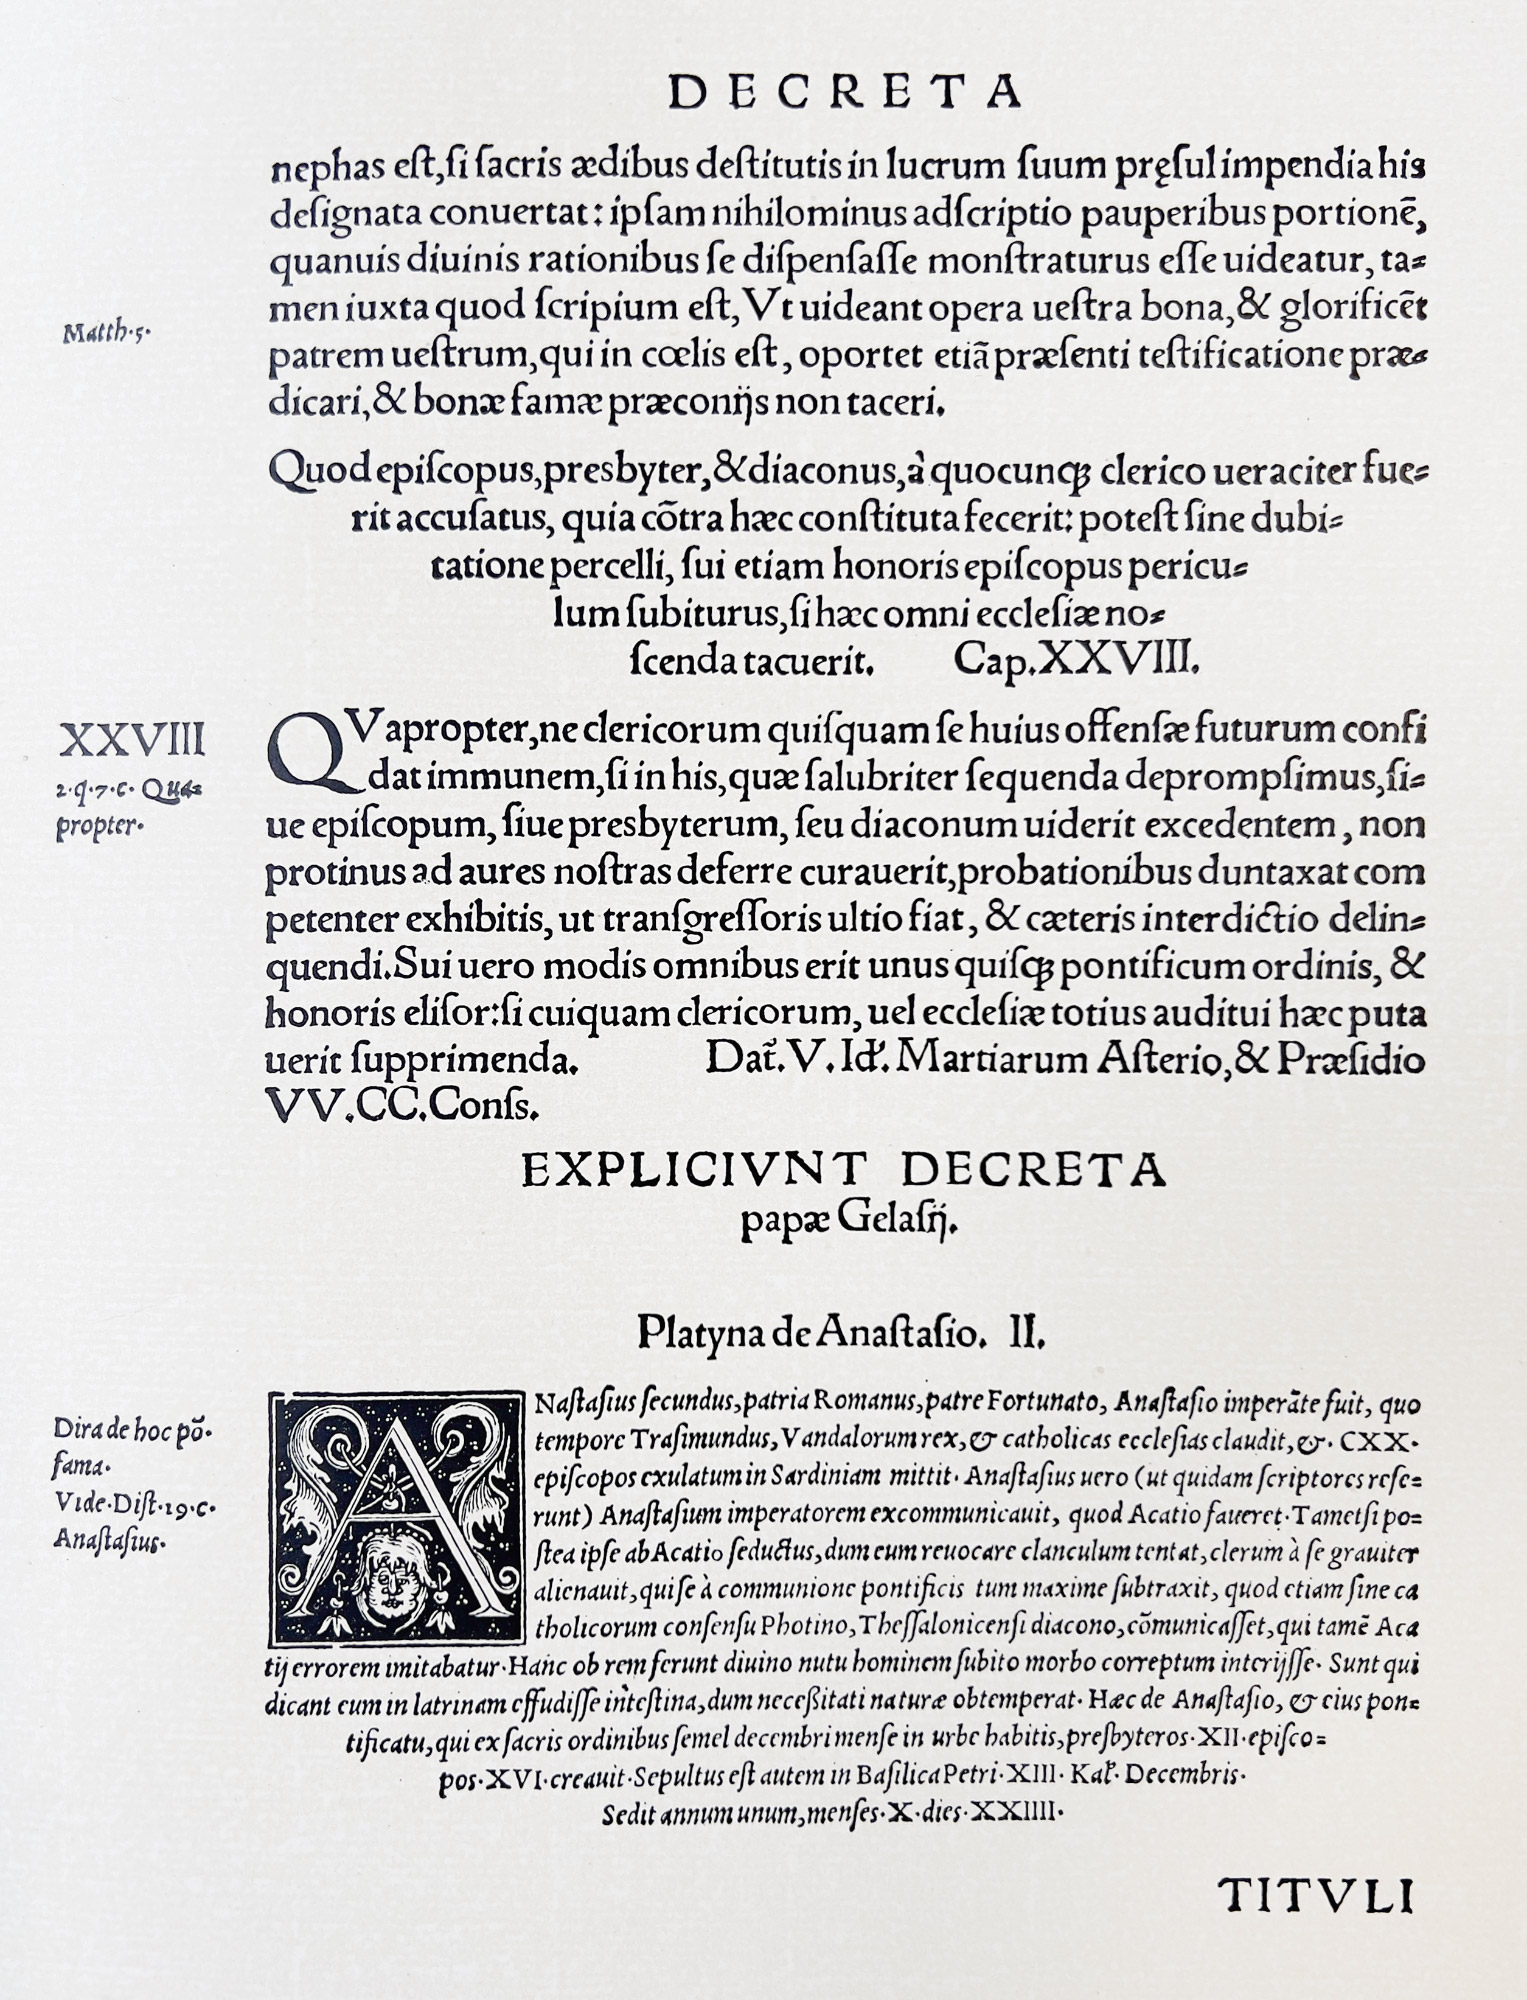 DECRETA
nephas eſt, ſi ſacris ædibus deſtitutis in lucrum ſuum pręſul impendia his
deſignata conuertat: ipſam nihilominus adſcriptio pauperibus portionē,
quanuis diuinis rationibus ſe diſpenſaſſe monſtraturus eſſe uideatur, ta⸗
Matth·5·
men iuxta quod ſcripium eſt, Vt uideant opera ueſtra bona, & glorificēt
patrem ueſtrum, qui in cœlis eſt, oportet etiā præſenti teſtificatione præ⸗
dicari, & bonæ famæ præconijs non taceri.
Quod epiſcopus, presbyter, & diaconus, à quocunqꝫ clerico ueraciter fue⸗
rit accuſatus, quia cōtra hæc conſtituta fecerit: poteſt ſine dubi⸗
tatione percelli, ſui etiam honoris epiſcopus pericu⸗
lum ſubiturus, ſi hæc omni eccleſiæ no⸗
ſcenda tacuerit. Cap. XXVIII.
XXVIII
2·q·7·c· Qua⸗
propter·
QVapropter, ne clericorum quiſquam ſe huius offenſæ futurum confi
dat immunem, ſi in his, quæ ſalubriter ſequenda deprompſimus, ſi⸗
ue epiſcopum, ſiue presbyterum, ſeu diaconum uiderit excedentem, non
protinus ad aures noſtras deferre curauerit, probationibus duntaxat com
petenter exhibitis, ut tranſgreſſoris ultio fiat, & cæteris interdictio delin⸗
quendi. Sui uero modis omnibus erit unus quiſqꝫ pontificum ordinis, &
honoris eliſor: ſi cuiquam clericorum, uel eccleſiæ totius auditui hæc puta
uerit ſupprimenda. Dat̃. V. Id̃. Martiarum Aſterio, & Præſidio
VV. CC. Conſs.
EXPLICIVNT DECRETA
papæ Gelaſij.
Platyna de Anaſtaſio. II.
Dira de hoc pō·
fama·
Vide·Diſt·19·c·
Anaſtaſius·
ANaſtaſius ſecundus, patria Romanus, patre Fortunato, Anaſtaſio imperāte fuit, quo
tempore Traſimundus, Vandalorum rex, & catholicas eccleſias claudit, &· CXX·
epiſcopos exulatum in Sardiniam mittit· Anaſtaſius uero (ut quidam ſcriptores refe⸗
runt) Anaſtaſium imperatorem excommunicauit, quod Acatio faueret· Tametſi po⸗
ſtea ipſe ab Acatio ſeductus, dum eum reuocare clanculum tentat, clerum à ſe grauiter
alienauit, qui ſe à communione pontificis tum maxime ſubtraxit, quod etiam ſine ca
tholicorum conſenſu Photino, Theſſalonicenſi diacono, cōmunicaſſet, qui tamē Aca
tij errorem imitabatur· Hanc ob rem ferunt diuino nutu hominem ſubito morbo correptum interijſſe· Sunt qui
dicant eum in latrinam effudiſſe inteſtina, dum neceßitati naturæ obtemperat· Hæc de Anaſtaſio, & eius pon⸗
tificatu, qui ex ſacris ordinibus ſemel decembri menſe in urbe habitis, preſbyteros·XII·epiſco⸗
pos·XVI·creauit· Sepultus eſt autem in Baſilica Petri·XIII· Kal̃· Decembris·
Sedit annum unum, menſes·X·dies·XXIIII·
TITVLI